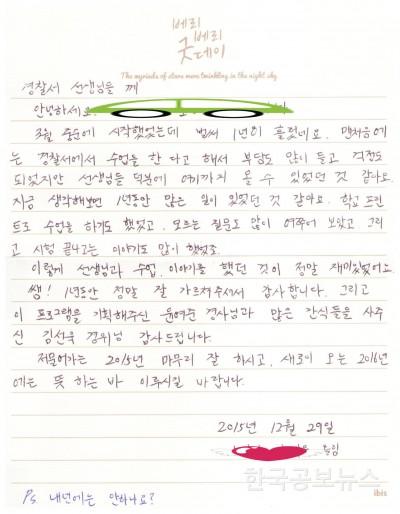 베리
베리
굿
데이
The myriads of stars were twinkling in the night sky
경찰서 선생님들 께
안녕하세요.
3월 중순에 시작했었는데 벌써 1년이 흘렀네요. 맨처음에
는 경찰서에서 수업을 한 다고 해서 부담도 많이 들고 걱정도
되었지만 선생님들 덕분에 여기까지 올 수 있었던 것 같아요.
지금 생각해보면 1년동안 많은 일이 있었던 것 같아요. 학교 프린
트로 수업을 하기도 했었고, 모르는 질문도 많이 여쭈어 보았고 그리
고 시험 끝나고는 이야기도 많이 했었죠.
이렇게 선생님과 수업, 이야기를 했던 것이 정말 재미있었어요.
쌤! 1년동안 정말 잘 가르쳐주셔서 감사합니다. 그리고
이 프로그램을 기획해주신 윤여준 경사님과 많은 간식들을 사주
신 김선욱 경위님 감사드립니다.
저물어가는 2015년 마무리 잘 하시고, 새로이 오는 2016년
에는 뜻 하는 바 이루시길 바랍니다.
2015년 12월 29일
올림
ibis
한국공보뉴스
Ps 내년에는 안하나요?